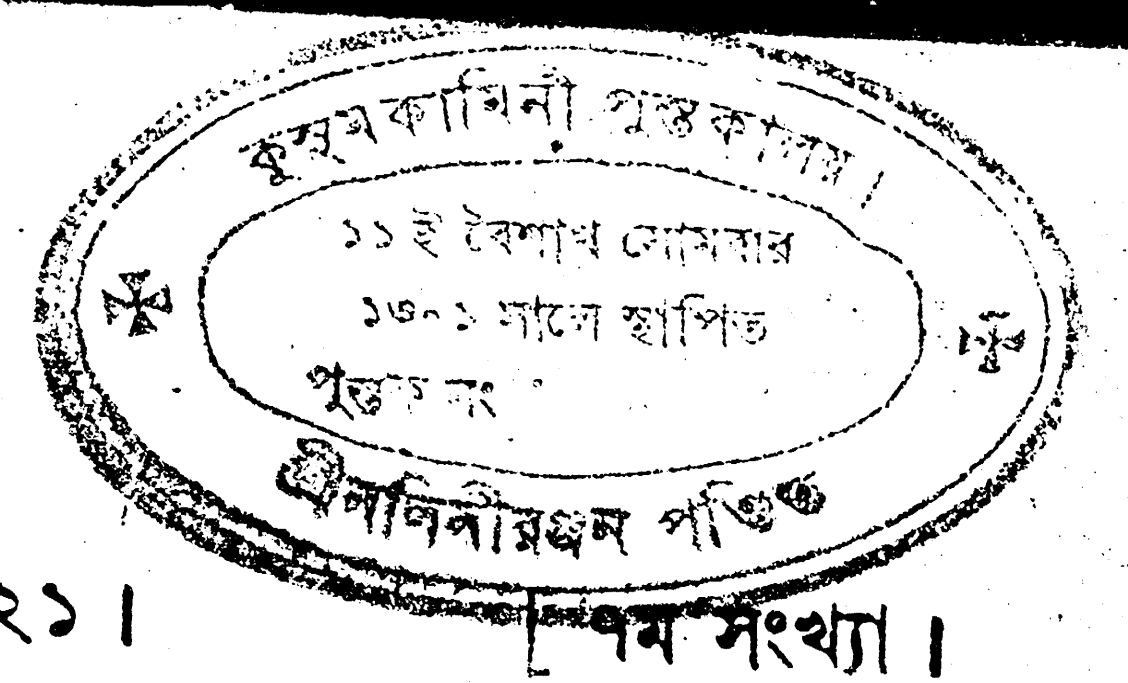 কুসুমকামিনী পুস্তকালয়।
১১ই বৈশাখ সোমবার
১৩০১ সালে স্থাপিত
পুস্তক নং
শ্রীনলিনীরঞ্জন পণ্ডিত
২১। ৭ম সংখ্যা।